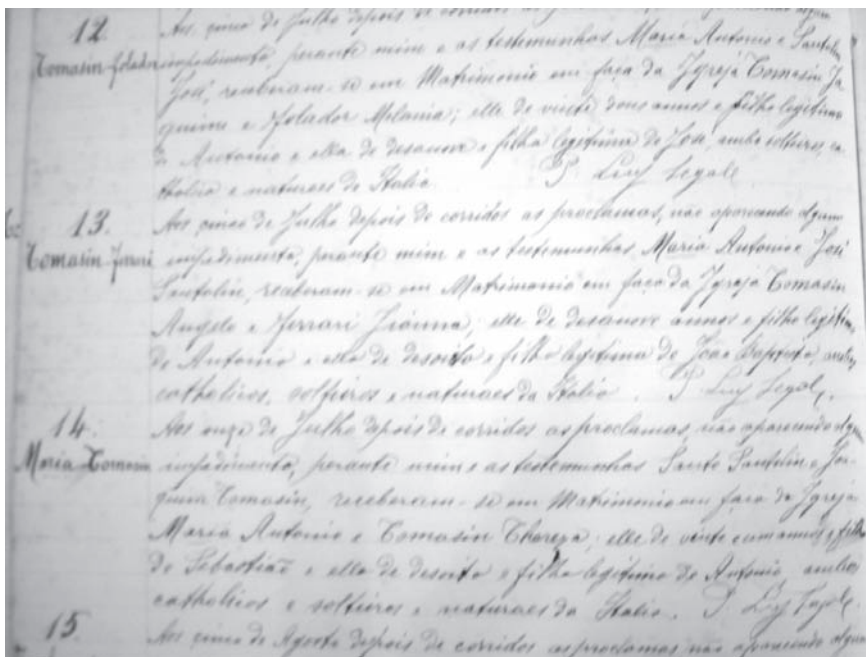 12.
Tomasin Folador
Aos cinco de Julho depois de corridos as
impedimento, perante mim e as testemunhas Maria Antonio e Santolin
José, receberam-se em Matrimonio em faça da Igreja Tomasin Joa-
quim e Folador Melania; elle de vinte dous annos e filho legitimo
de Antonio e ella de desanove e filha legitima de José, ambos solteiros, ca-
tholicos e naturaes de Italia. P. Luiz Segale
13.
Tomasin Ferrari
Aos cinco de Julho depois de corridos as proclamas, não aparecendo algum
impedimento, perante mim e as testemunhas Maria Antonio e José
Santolin, receberam-se em Matrimonio em faça da Igreja Tomasin
Angelo e Ferrari Joanna; elle de desanove annos e filho legitimo
de Antonio e ella de desoito e filha legitima de João Baptista, ambos
catholicos, solteiros e naturaes da Italia. P. Luiz Segale
14.
Maria Tomasin
Aos onze de Julho depois de corridos as proclamas, não aparecendo algum
impedimento, perante mim e as testemunhas Santo Santolin e Joa-
quim Tomasin, receberam-se em Matrimonio em faça da Igreja
Maria Antonio e Tomasin Thereza; elle de vinte e um annos e filho
de Sebastião e ella de desoito e filha legitima de Antonio, ambos
catholicos e solteiros e naturaes da Italia. P. Luiz Segale
15.
Aos cinco de Agosto depois de corridos as proclamas não aparecendo algum